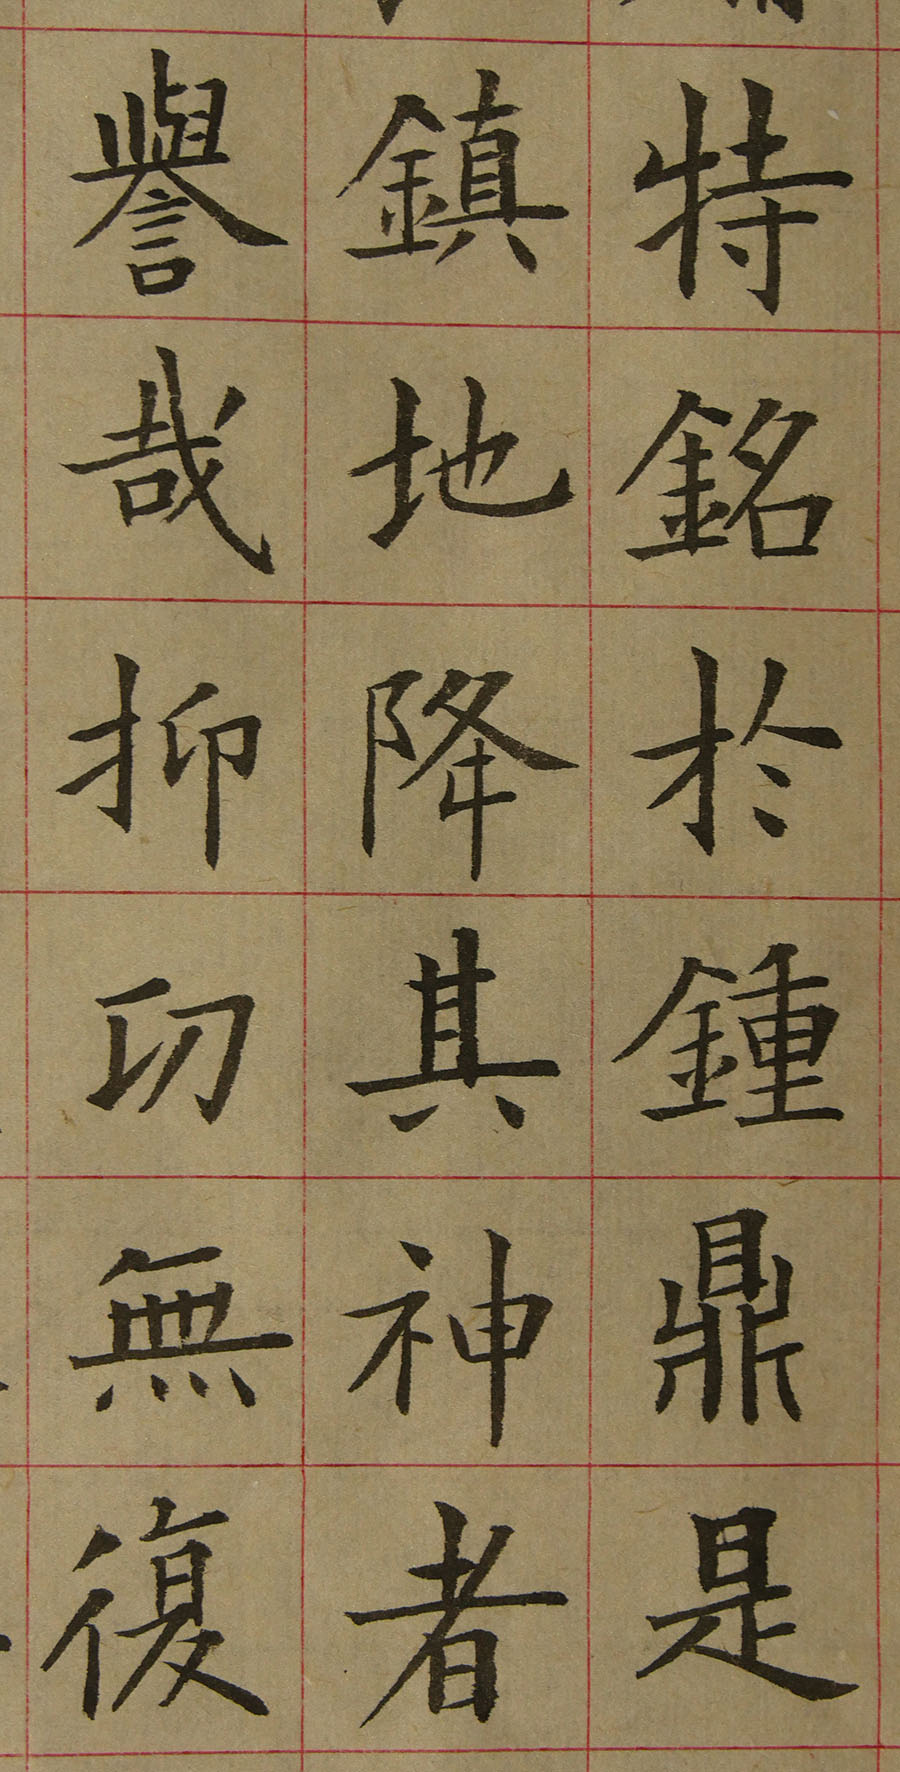 特銘於鍾鼎是
鎮地降其神者
譽哉抑㓛無復